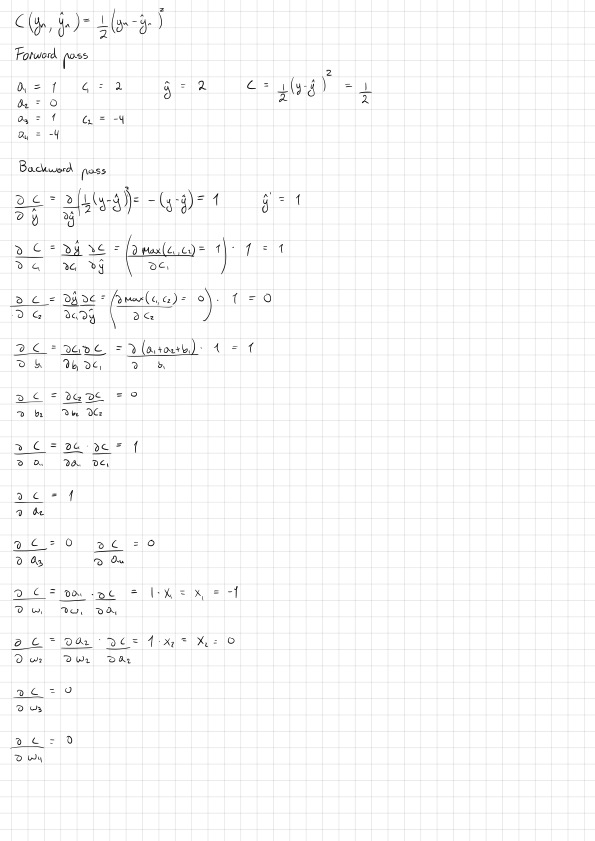 C(yₙ, ŷₙ) = 1/2 (yₙ - ŷₙ)²
Forward pass
a₁ = 1   c₁ = 2   ŷ = 2   C = 1/2 (y - ŷ)² = 1/2
a₂ = 0
a₃ = 1   c₂ = -4
a₄ = -4
Backward pass
∂C/∂ŷ = ∂/∂ŷ (1/2 (y - ŷ)²) = -(y - ŷ) = 1   ŷ' = 1
∂C/∂c₁ = ∂ŷ/∂c₁ ∂C/∂ŷ = (∂ max(c₁, c₂)/∂c₁ = 1) · 1 = 1
∂C/∂c₂ = ∂ŷ/∂c₁ ∂C/∂ŷ = (∂ max(c₁, c₂)/∂c₂ = 0) · 1 = 0
∂C/∂b₁ = ∂c₁/∂b₁ ∂C/∂c₁ = ∂(a₁ + a₂ + b₁)/∂b₁ · 1 = 1
∂C/∂b₂ = ∂c₂/∂b₂ ∂C/∂c₂ = 0
∂C/∂a₁ = ∂c₁/∂a₁ · ∂C/∂c₁ = 1
∂C/∂a₂ = 1
∂C/∂a₃ = 0   ∂C/∂a₄ = 0
∂C/∂w₁ = ∂a₁/∂w₁ · ∂C/∂a₁ = 1 · x₁ = x₁ = -1
∂C/∂w₂ = ∂a₂/∂w₂ · ∂C/∂a₂ = 1 · x₂ = x₂ = 0
∂C/∂w₃ = 0
∂C/∂w₄ = 0